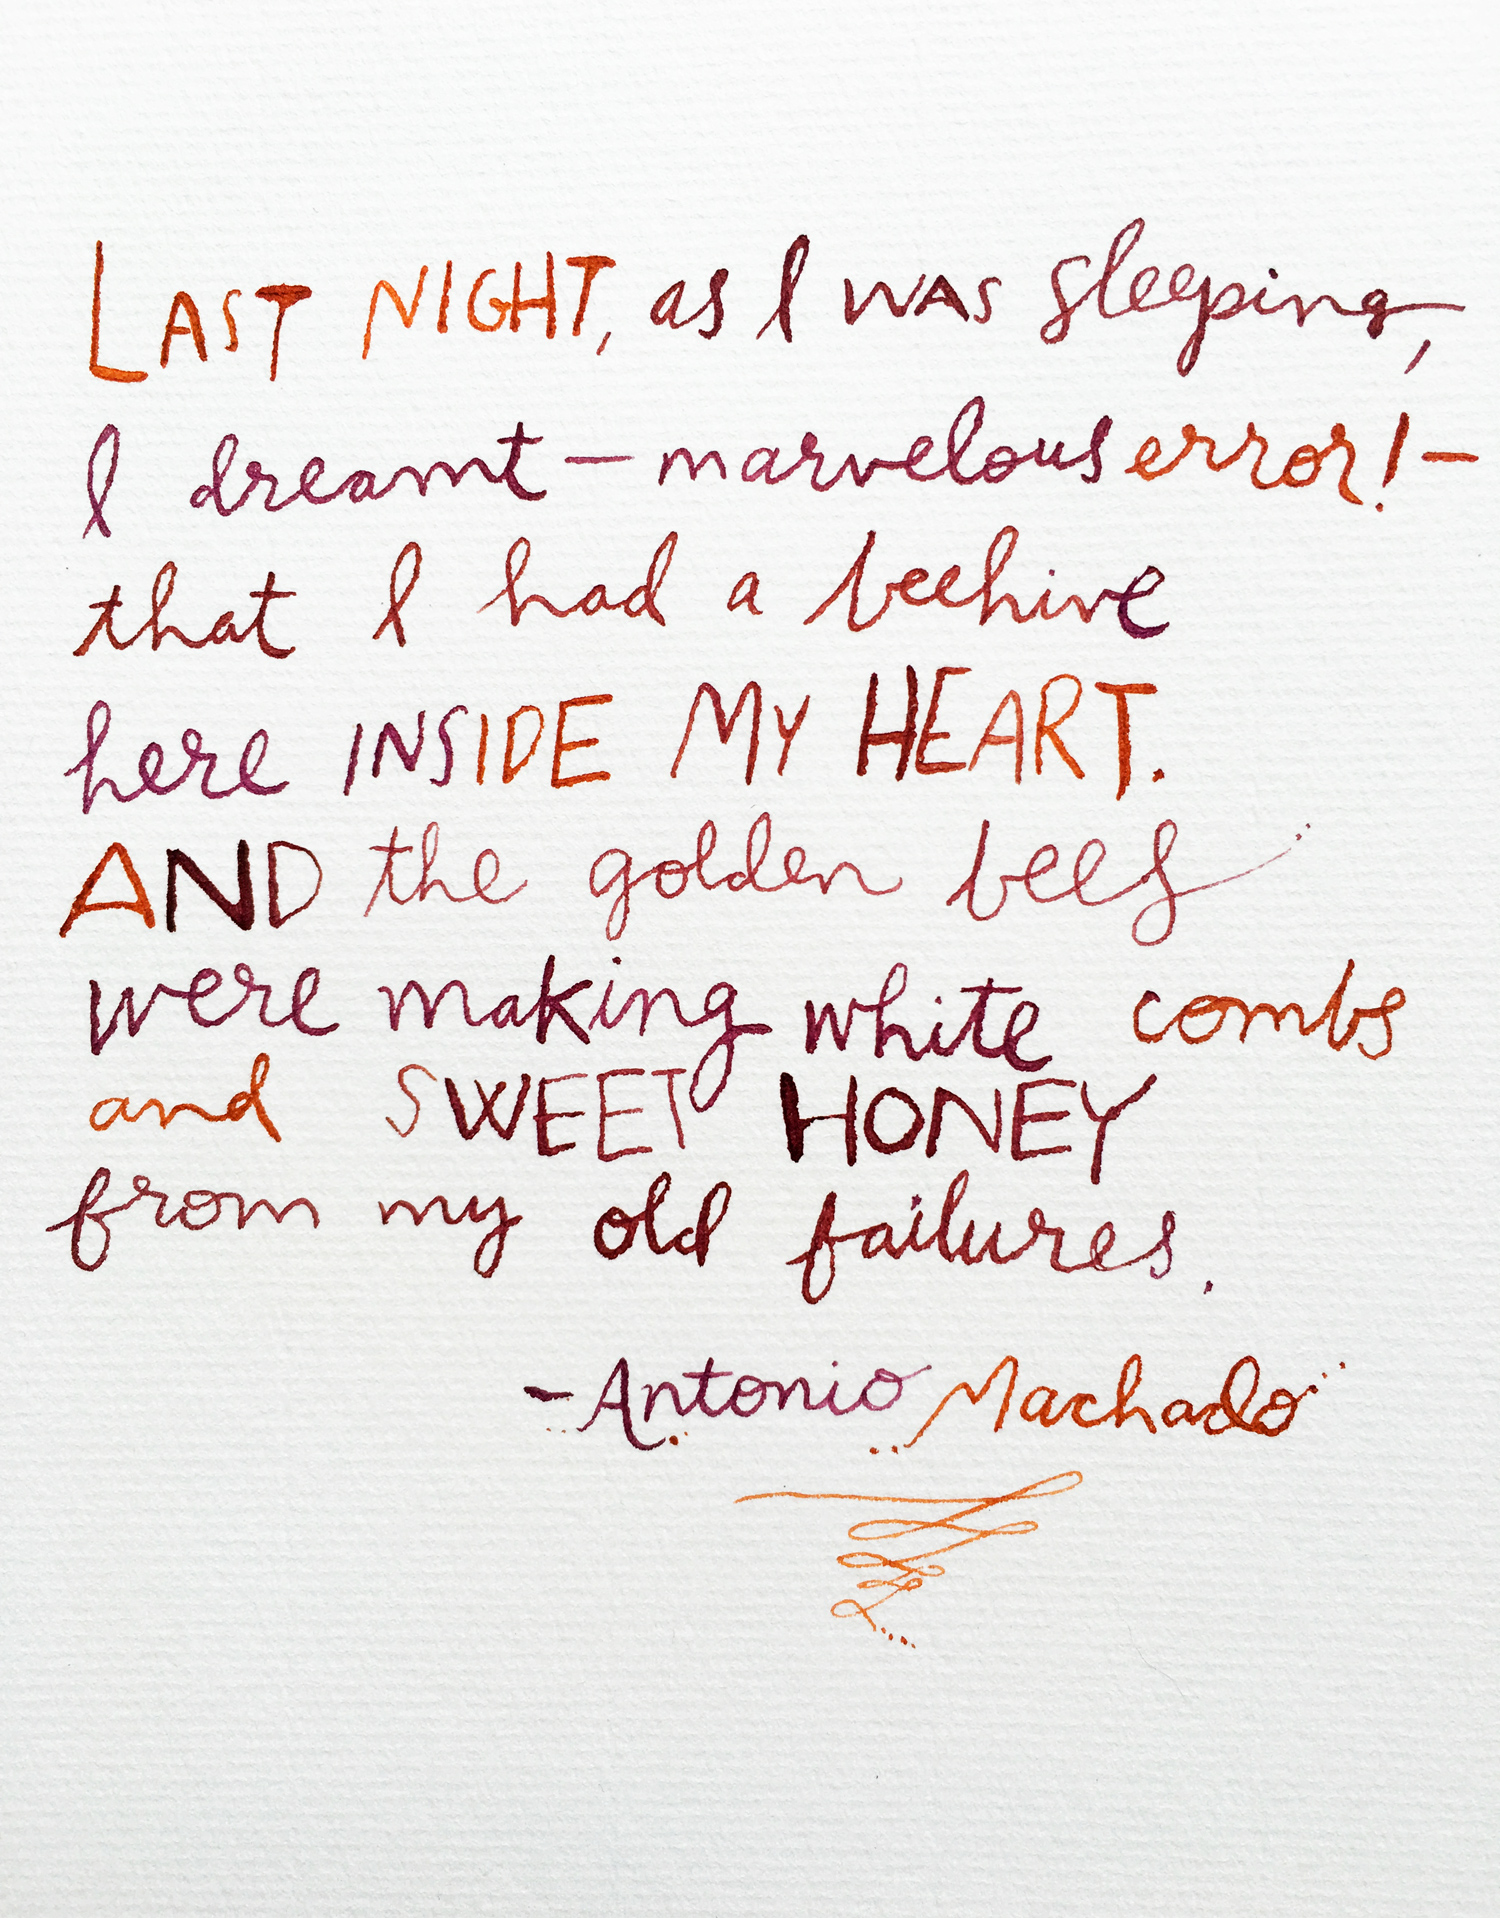 LAST NIGHT, as I WAS sleeping,
I dreamt – marvelous error! –
that I had a beehive
here INSIDE MY HEART.
AND the golden bees
were making white combs
and SWEET HONEY
from my old failures.
- Antonio Machado